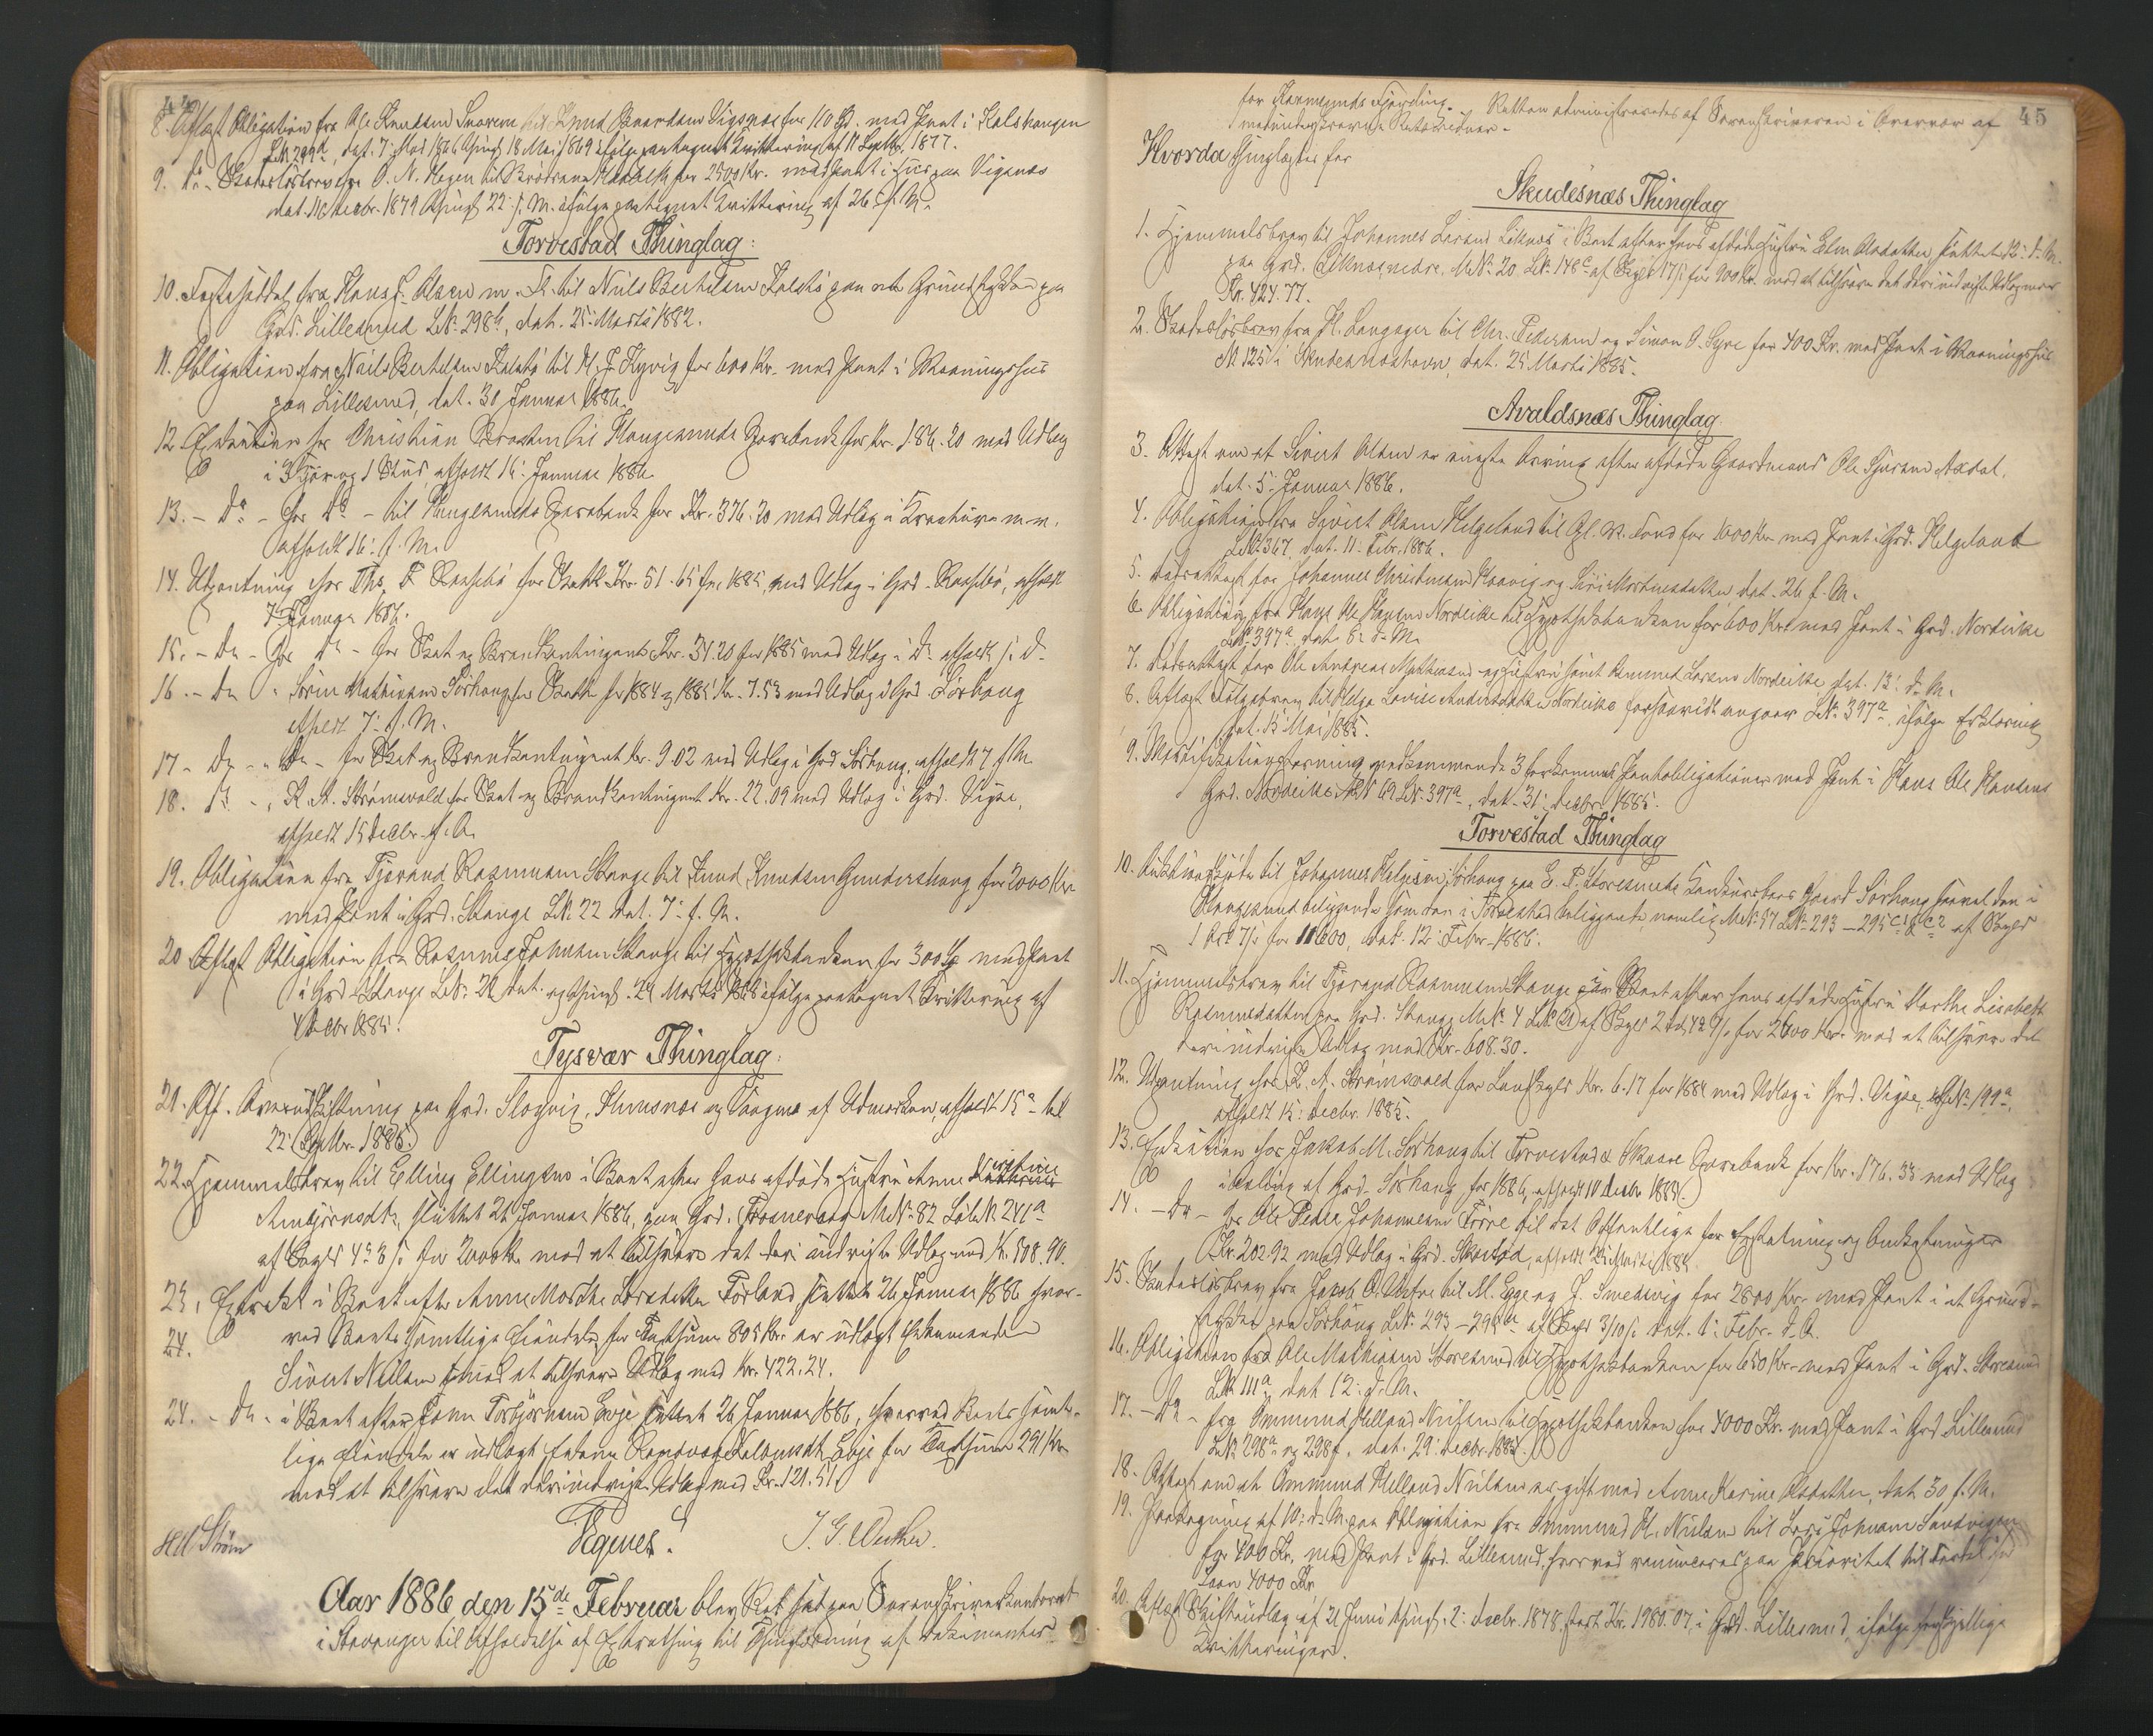 44
8. Aflæst Obligation fra Ole Knudsen Snørem til Knud Osmundsen Vigsnæs for 110 Spd. med Pant i Halshaugen
LN 299d, dat. 7 Mai 1866 thingl. 18 Mai 1869 ifølge paategnet Kvittering af 11 Septbr. 1877.
9. do - Skadesløsbrev fra O. N. Hagen til Brødrene for 2500 Kr. med Pant i Hus paa Vigsnæs
dat. 11 Decbr. 1879 thingl. 22 s. M. ifølge paategnet Kvittering af 26 f. M.
Torvestad Thinglag:
10. Fæsteseddel fra Hans J. Olsen m. fl. til Niels Bertelsen Kalstø paa et Grundstykke paa
Grd. Lillesund LN. 298b, dat. 25 Marts 1882.
11. Obligation fra Niels Bertelsen Kalstø til M. J. Kyvig for 600 Kr. med Pant i Vaaningshus
paa Lillesund, dat. 30 Januar 1886.
12. Exekution hos Christian til Haugesunds Sparebank for Kr. 186.20 med Udlæg
i 3 Kjør og 1 Stud, afholdt 16 Januar 1886.
13. - Do - hos Do - til Haugesunds Sparebank for Kr. 376.20 med Udlæg i Kreaturer m. m.
afholdt 16 f. M.
14. Udpantning hos Ths. T. for Skatte Kr. 51.65 for 1885, med Udlæg i Grd. afholdt
7 Januar 1886.
15. - Do - hos do - for Skat og Brandkontingent Kr. 31.20 for 1885 med Udlæg i Do afholdt s. D.
16. - Do " Sørin Mathiasen Sørhaug for Skatte for 1884 og 1885 Kr. 7.53 med Udlæg i Grd. Sørhaug
afholdt 7 f. M.
17. - Do - " Do - for Skat og Brandkontingent Kr. 9.02 med Udlæg i Grd Sørhaug, afholdt 7 f M
18. Do - " K. A. Strømsvold for Skat og Brandkontingent Kr. 22.09 med Udlæg i Grd. Vigse,
afholdt 15 Decbr. f. A.
19. Obligation fra Tjerand Rasmussen Stange til Knud Knudsen Gundershaug for 2000 Kr.
med Pant i Grd. Stange LN. 22 dat. 7 f. M.
20. Aflæst Obligation fra Rasmus Johnsen Stange til Hypothekbanken for 300 Sp med Pant
i Grd. Stange LN. 22, dat. og thingl. 24 Marts ifølge paategnet Kvittering af
4 Decbr 1885.
Tysvær Thinglag:
21. Aff. Overudskiftning paa Grd. Slogvig, og af Udmarken, afholdt 15 - til
22 Septbr. 1885.
22. Hjemmelsbrev til Elling Ellingsen i Boet efter hans afdøde Hustru Anne
Arnbjørnsdtr., sluttet 21 Januar 1886, paa Grd. MN. 82 Løbe N. 241a
af Skyld for 2000 Kr. med at tilsvare det deri indvigte Udlæg med Kr. 508.90.
23. Extrakt i Boet efter Anne Marthe Larsdatter Førland, sluttet 26 Januar 1886 hvor-
24. ved Boets samtlige Eiendele for Taxtsum 805 Kr. er udlagt Enkemanden
Sivert Nielsen imod at tilsvare Udlæg med Kr. 422.24.
24. - Do - i Boet efter John Torbjørnsen Eoje sluttet 26 Januar 1886, hvorved Boets samt-
lige Eiendele er udlagt Enken for Taxtsum 291 Kr.
mod at tilsvare det deri indvigte Udlæg med Kr. 121.51.
Strøm Vegner. J. G. Meither.
Aar 1886 den 15de Februar blev Ret sat paa Sorenskriverkontoret
i Stavanger til Afholdelse af Extrathing til Thinglæsning af Dokumenter
45
for Karmsunds Fjerding. Retten administreredes af Sorenskriveren i Overvær af
medunderskrevne Retsvidner.
Hvorda thinglæstes for
Skudesnæs Thinglag
1. Hjemmelsbrev til Johannes Larsen Liknæs i Boet efter hans afdøde Hustru Elen Olsdatter, sluttet 12 d. M.
paa Grd. Liknæs nedre, MN. 20 LN. 148c af Skyld for 900 Kr. mod at tilsvare det deri indvigte Udlæg med
Kr. 424.77.
2. Skadesløsbrev fra H. Langager til Chr. Pedersen og Simon O. Syre for 400 Kr. med Pant i Vaaningshus
N 125 i Skudesneshavn, dat. 25 Marts 1885.
Avaldsnæs Thinglag.
3. Attest om at Sivert Olsen er eneste Arving efter afdøde Gaardmand Ole Sjursen Axdal,
dat. 5 Januar 1886.
4. Obligation fra Sivert Olsen Helgeland til Opl. V. Fond for 1000 Kr. med Pant i Grd. Helgeland
LN. 367, dat. 11 Febr. 1886.
5. Dødsattest for Johannes Christensen Haavig og Siri Mortensdatter dat. 26 f. M.
6. Obligation fra Hans Ole Hansen Nordeike til Hypothekbanken for 600 Kr. med Pant i Grd. Nordeike
LN. 397a, dat. 8 d. M.
7. Dødsattest for Ole Andreas Mathiesen og Hustru samt Larsens Nordeike, dat. 13 d. M.
8. Aflæst Følgebrev til Helga Lovise Andersdatter Nordeike forsaavidt angaar LN. 397a, ifølge Erklæring
dat. 15 Mai 1885.
9. Mortifikationsdom vedkommende 3 bortkomne Pantobligationer med Pant i Hans Ole Hansens
Grd. Nordeike MN 69 LN. 397a, dat. 31 Decbr. 1885.
Torvestad Thinglag
10. Auktionsskjøde til Johannes Helgesen Sørhaug paa E. P. Storesunds Konkursboes Gaard Sørhaug saavel den i
Haugesund beliggende som den i Torvestad beliggende, nemlig MN. 57 LN. 293 - 295c1 & c2 af Skyld
for 11600, dat. 12 Febr. 1886.
11. Hjemmelsbrev til Tjerand Rasmussen Stange i Boet efter hans afdøde Hustru Marthe Lisabeth
Rasmusdatter paa Grd. Stange MN. 4 LN. 21 af Skyld for 2600 Kr. mod at tilsvare det
deri indvigte Udlæg med Kr. 608.30.
12. Udpantning hos K. A. Strømsvold for Landskyld Kr. 6.17 for 1884 med Udlæg i Grd. Vigse, LN. 199a,
afholdt 15 Decbr. 1885.
13. Exekution hos Jakob M. Sørhaug til Torvestad & Skaare Sparebank for Kr. 176.33 med Udlæg
i Avling af Grd. Sørhaug for 1886, afholdt 10 Decbr 1885.
14. - Do - hos Ole Peder Johannesen til det Offentlige for Erstatning og Omkostninger
Kr. 202.92 med Udlæg i Grd. afholdt
15. Skadesløsbrev fra Jacob O. til M. Egge og J. Smedsvig for 2800 Kr. med Pant i et Grund-
stykke paa Sørhaug LN. 293 - 295 af Skyld dat. 1 Febr. d. A.
16. Obligation fra Ole Mathiasen Storesund til Hypothekbanken for 650 Kr. med Pant i Grd. Storesund
LN. 111a, dat 12 d. M.
17. - Do - fra Ommund Helland Nielsen til Hypothekbanken for 4000 Kr. med Pant i Grd Lillesund
LN. 298a og 298f, dat. 29 Decbr. 1885.
18. Attest om at Ommund Helland Nielsen er gift med Anne Karine Olsdatter, dat 30 f. M.
19. Paategning af 10 d. M. paa Obligation fra Ommund H. Nielsen til Lars Johnsen Sandvigen
for 400 Kr. med Pant i Grd. Lillesund, hvorved renunceres paa Prioritet til Fordel for
Laan 4000 Kr
20. Aflæst Skifteudlæg af 21 Juni thingl. 2 Decbr. 1878 stort Kr. 1980.07, i Grd. Lillesund, ifølge forskjellige
Kvitteringer.